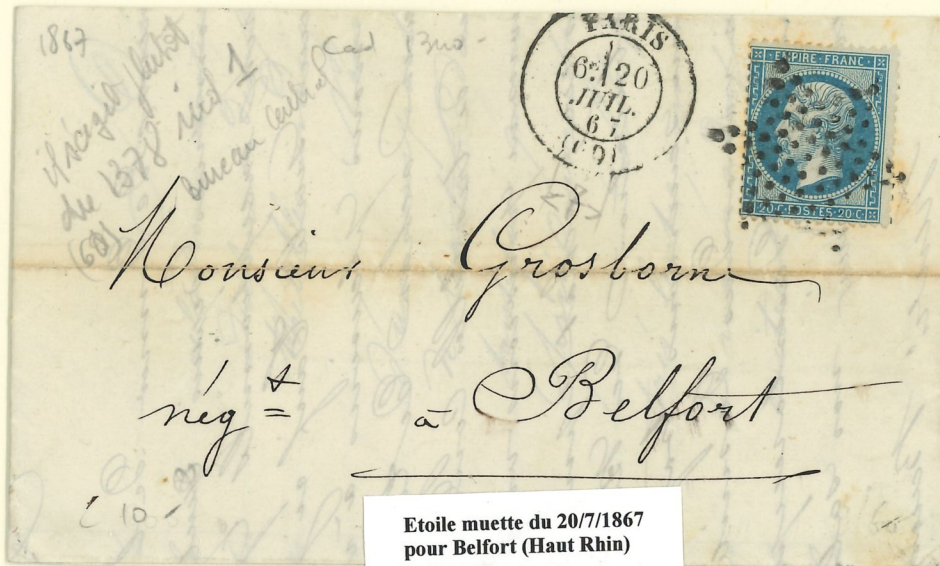 1867
Cad 13no -
il s'agit plutôt
du 1378 ind 1
(60) bureau central
PARIS
6E 20
JUIL.
67
(60)
EMPIRE-FRANC
20 C-POSTES-20 C
Monsieur Grosborne
négt
à Belfort
10 -
Etoile muette du 20/7/1867
pour Belfort (Haut Rhin)